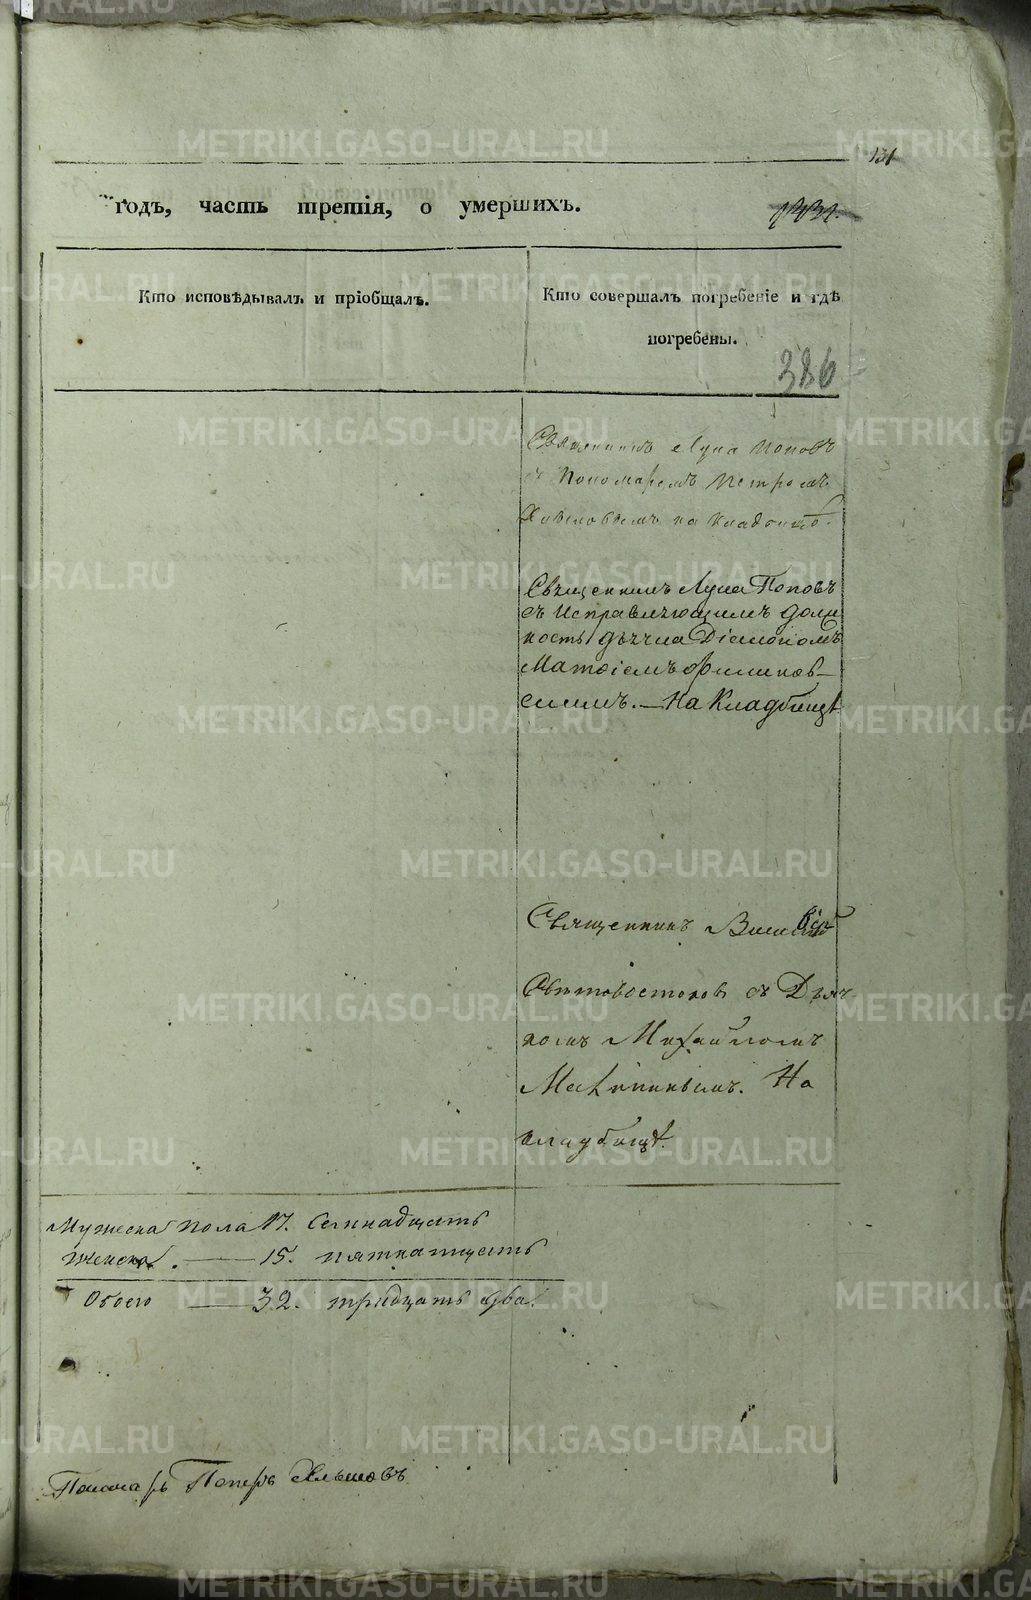 131
годъ, часть третія, о умершихъ.
Кто исповѣдывалъ и пріобщалъ.
Кто совершалъ погребеніе и гдѣ
погребены.
386
Священникъ Лука Поповъ
съ Пономаремъ Петромъ
на кладбищѣ.
Священникъ Лука Поповъ
съ Исправляющимъ долж
ность дьячка Діакономъ
Матѳіемъ
На Кладбищѣ
Священникъ Василій
Святовостоковъ съ Дьяч
комъ Михаиломъ
На
кладбищѣ.
Мужеска пола 17. Семнадцать
Женска. — 15. пятнатцать
Обоего — 32. тридцать два.
Пономарь Петръ
METRIKI.GASO-URAL.RU